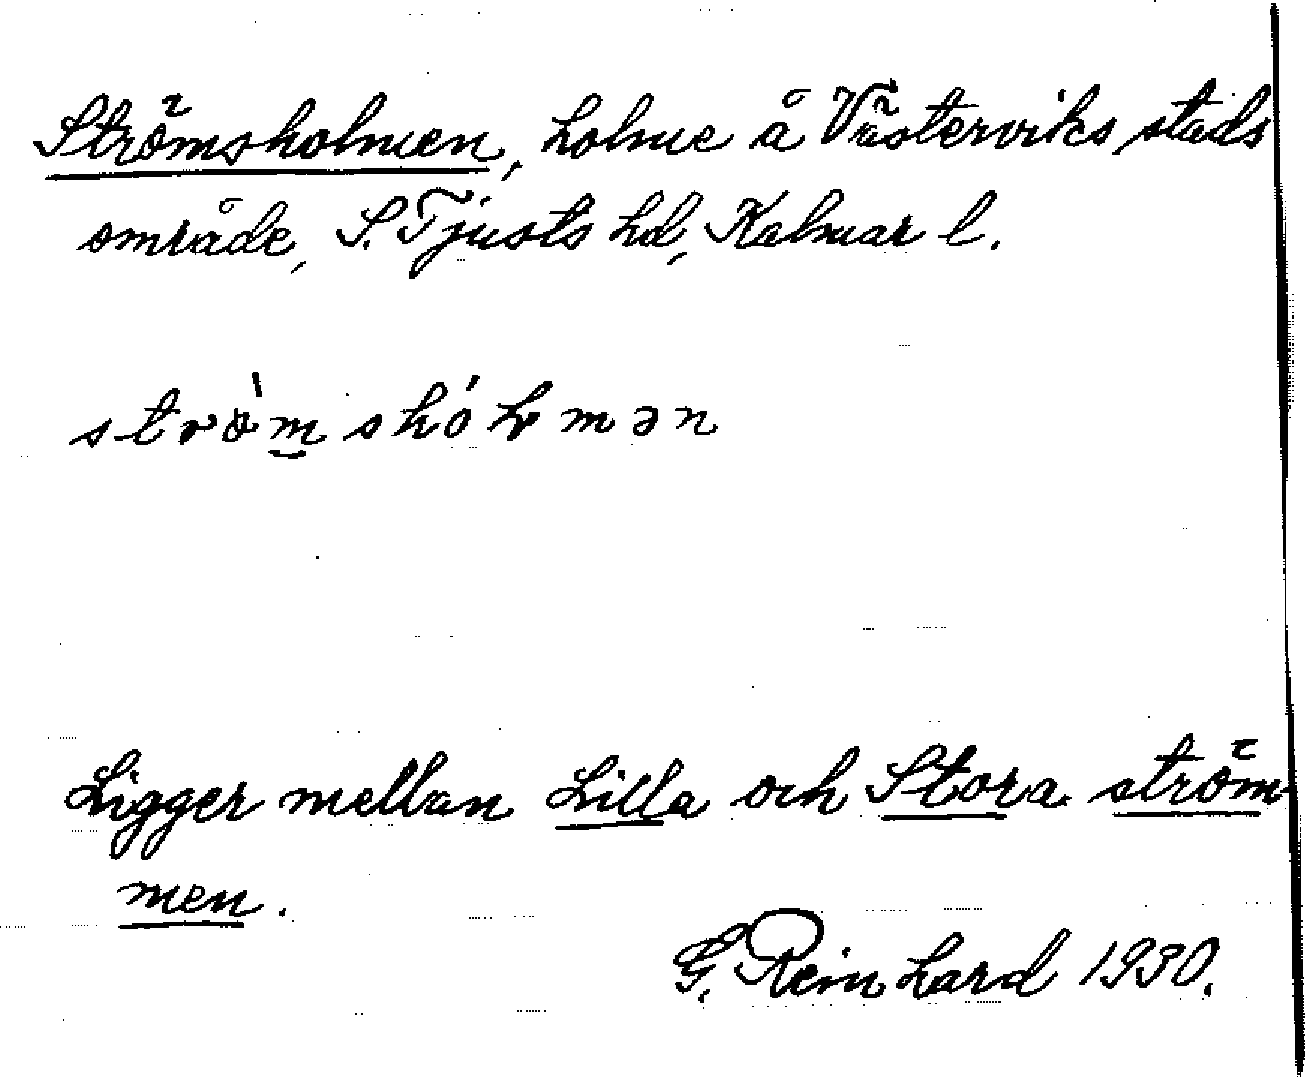 Strömsholmen, holme å Västerviks stads
område, S. Tjusts hd, Kalmar l.
strö̀m̮shółmən
Ligger mellan Lilla och Stora ström-
men.
G. Reinhard 1930.